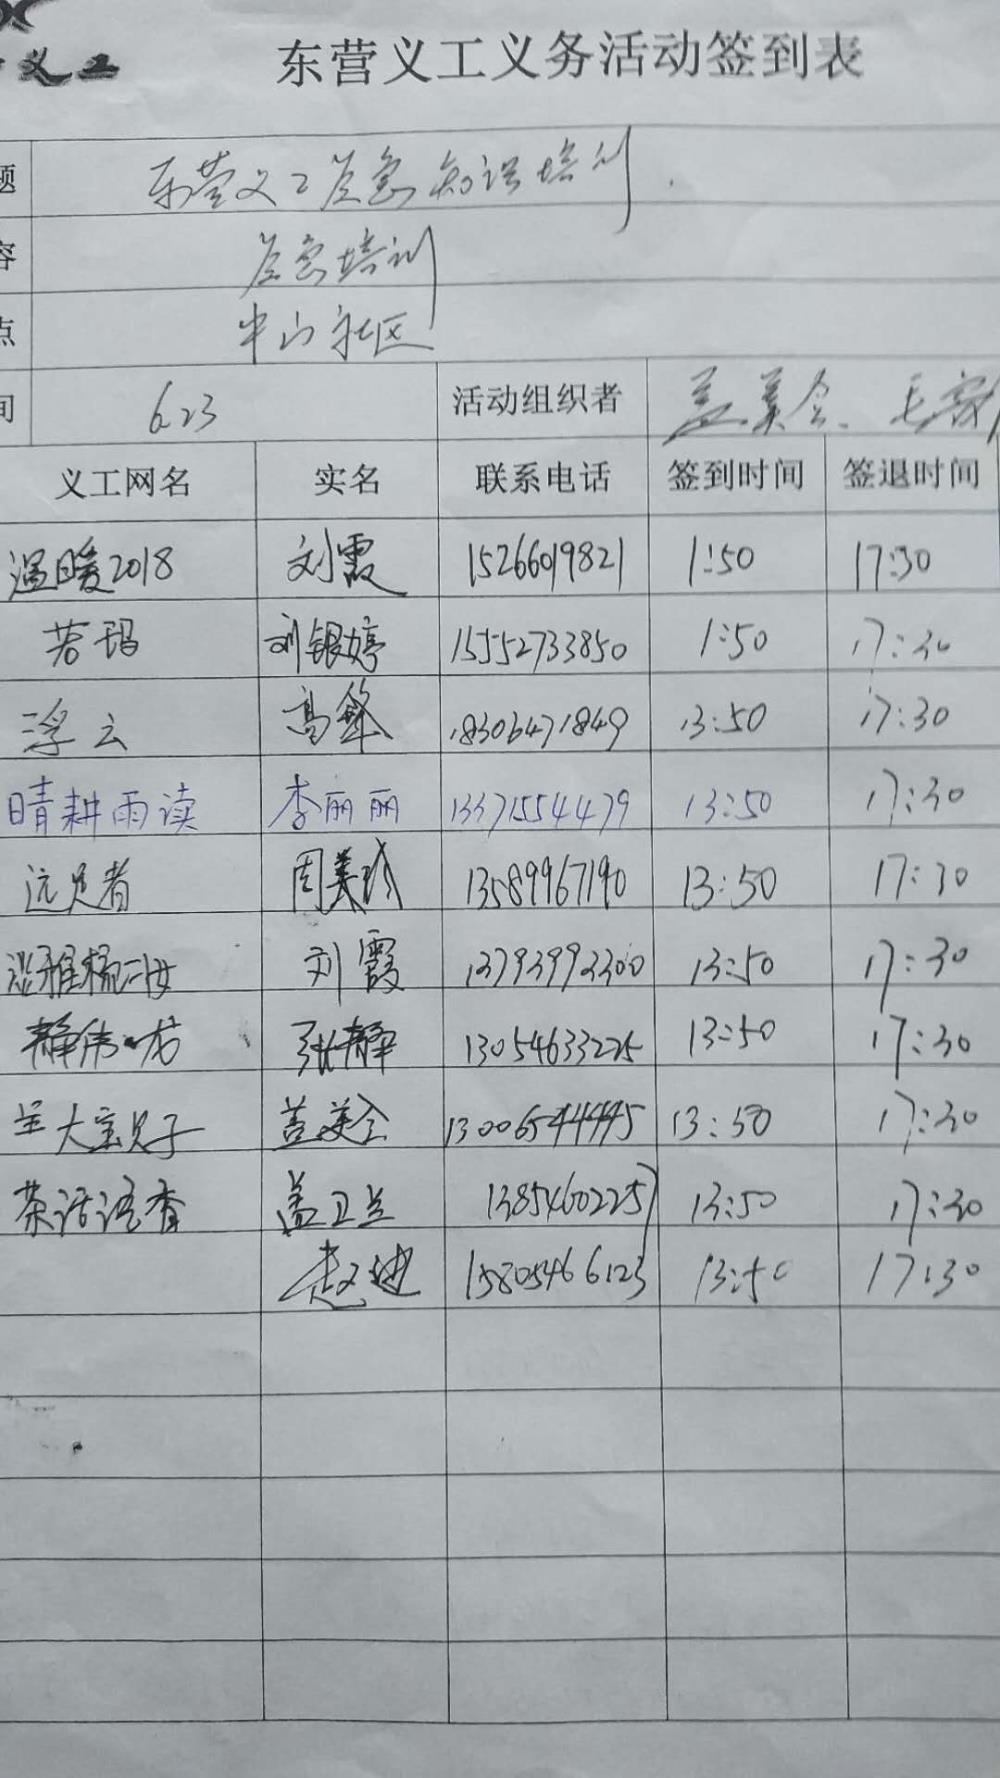 义工
东营义工义务活动签到表
题 东营义工应急知识培训
容 应急培训
点 中山社区
间 6.23 活动组织者 盖美全、毛
义工网名 实名 联系电话 签到时间 签退时间
温暖2018 刘霞 15266019821 1:50 17:30
若玛 刘银婷 15552733850 1:50 17:30
浮云 高锋 18306471849 13:50 17:30
晴耕雨读 李丽丽 13371554479 13:50 17:30
远足者 周美 13589967190 13:50 17:30
淡雅梳 刘霞 13793992300 13:50 17:30
静 张静 13054633225 13:50 17:30
大宝贝子 盖美全 13006544445 13:50 17:30
茶话语香 盖卫兰 13854602257 13:50 17:30
赵迪 15805466123 13:50 17:30